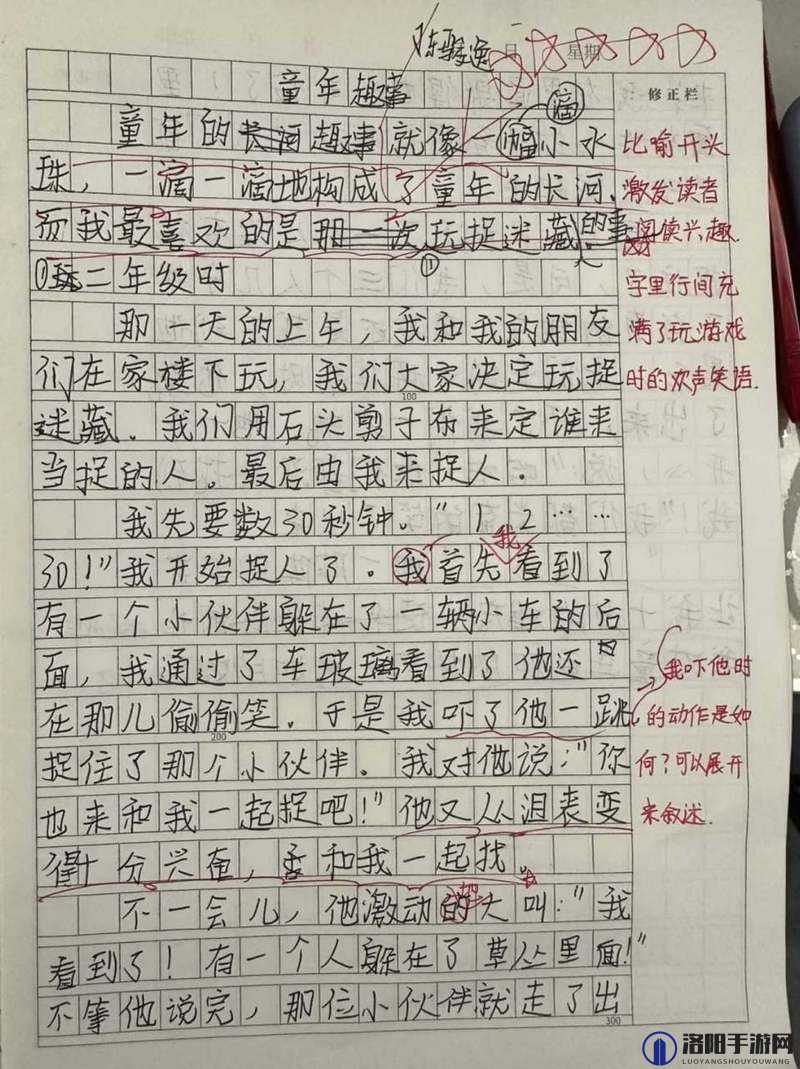 陈 月 星期
童年趣事
修正栏
童年的长河趣事就像一幅小水 滴
珠，一滴一滴地构成了童年的长河，
而我最喜欢的是那一次玩捉迷藏的事 ①
①玩二年级时
比喻开头
激发读者
阅读兴趣
字里行间充
满了玩游戏
时的欢声笑语.
那一天的上午，我和我的朋友
们在家楼下玩，我们大家决定玩捉
100
迷藏．我们用石头剪子布来定谁来
当捉的人。最后由我来捉人．
我先要数30秒钟。“1 2……
30！”我开始捉人了．我首先我看到了
有一个小伙伴躲在了一辆小车的后
面，我通过了车玻璃看到了他还
在那儿偷偷笑．于是我吓了他一跳
200
捉住了那个小伙伴。我对他说：“你
也来和我一起捉吧！”他又从沮丧变
得十分兴奋，委和我一起找。
我吓他时
的动作是如
何？可以展开
来叙述.
不一会儿，他激动的大叫：“我
看到了！有一个人躲在了草丛里面！”
不等他说完，那位小伙伴就走了出
300
洛阳手游网
LUOYANGSHOUYOUWANG